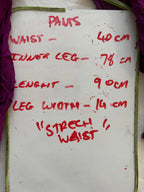 PANTS
WAIST - 40 CM
INNER LEG - 78 CM
LENGHT - 90 CM
LEG WIDTH - 14 CM
"STRECH" WAIST